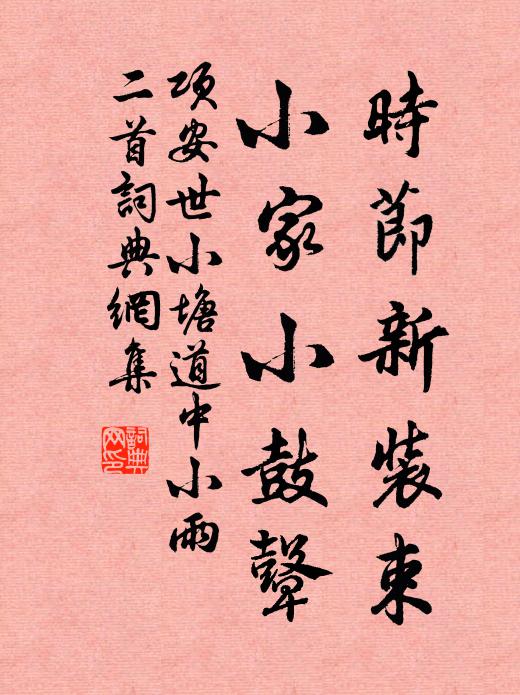 時莭新裝束
小家小鼓聲
項安世小塘道中小雨
二首詞典網集
詞典
网印